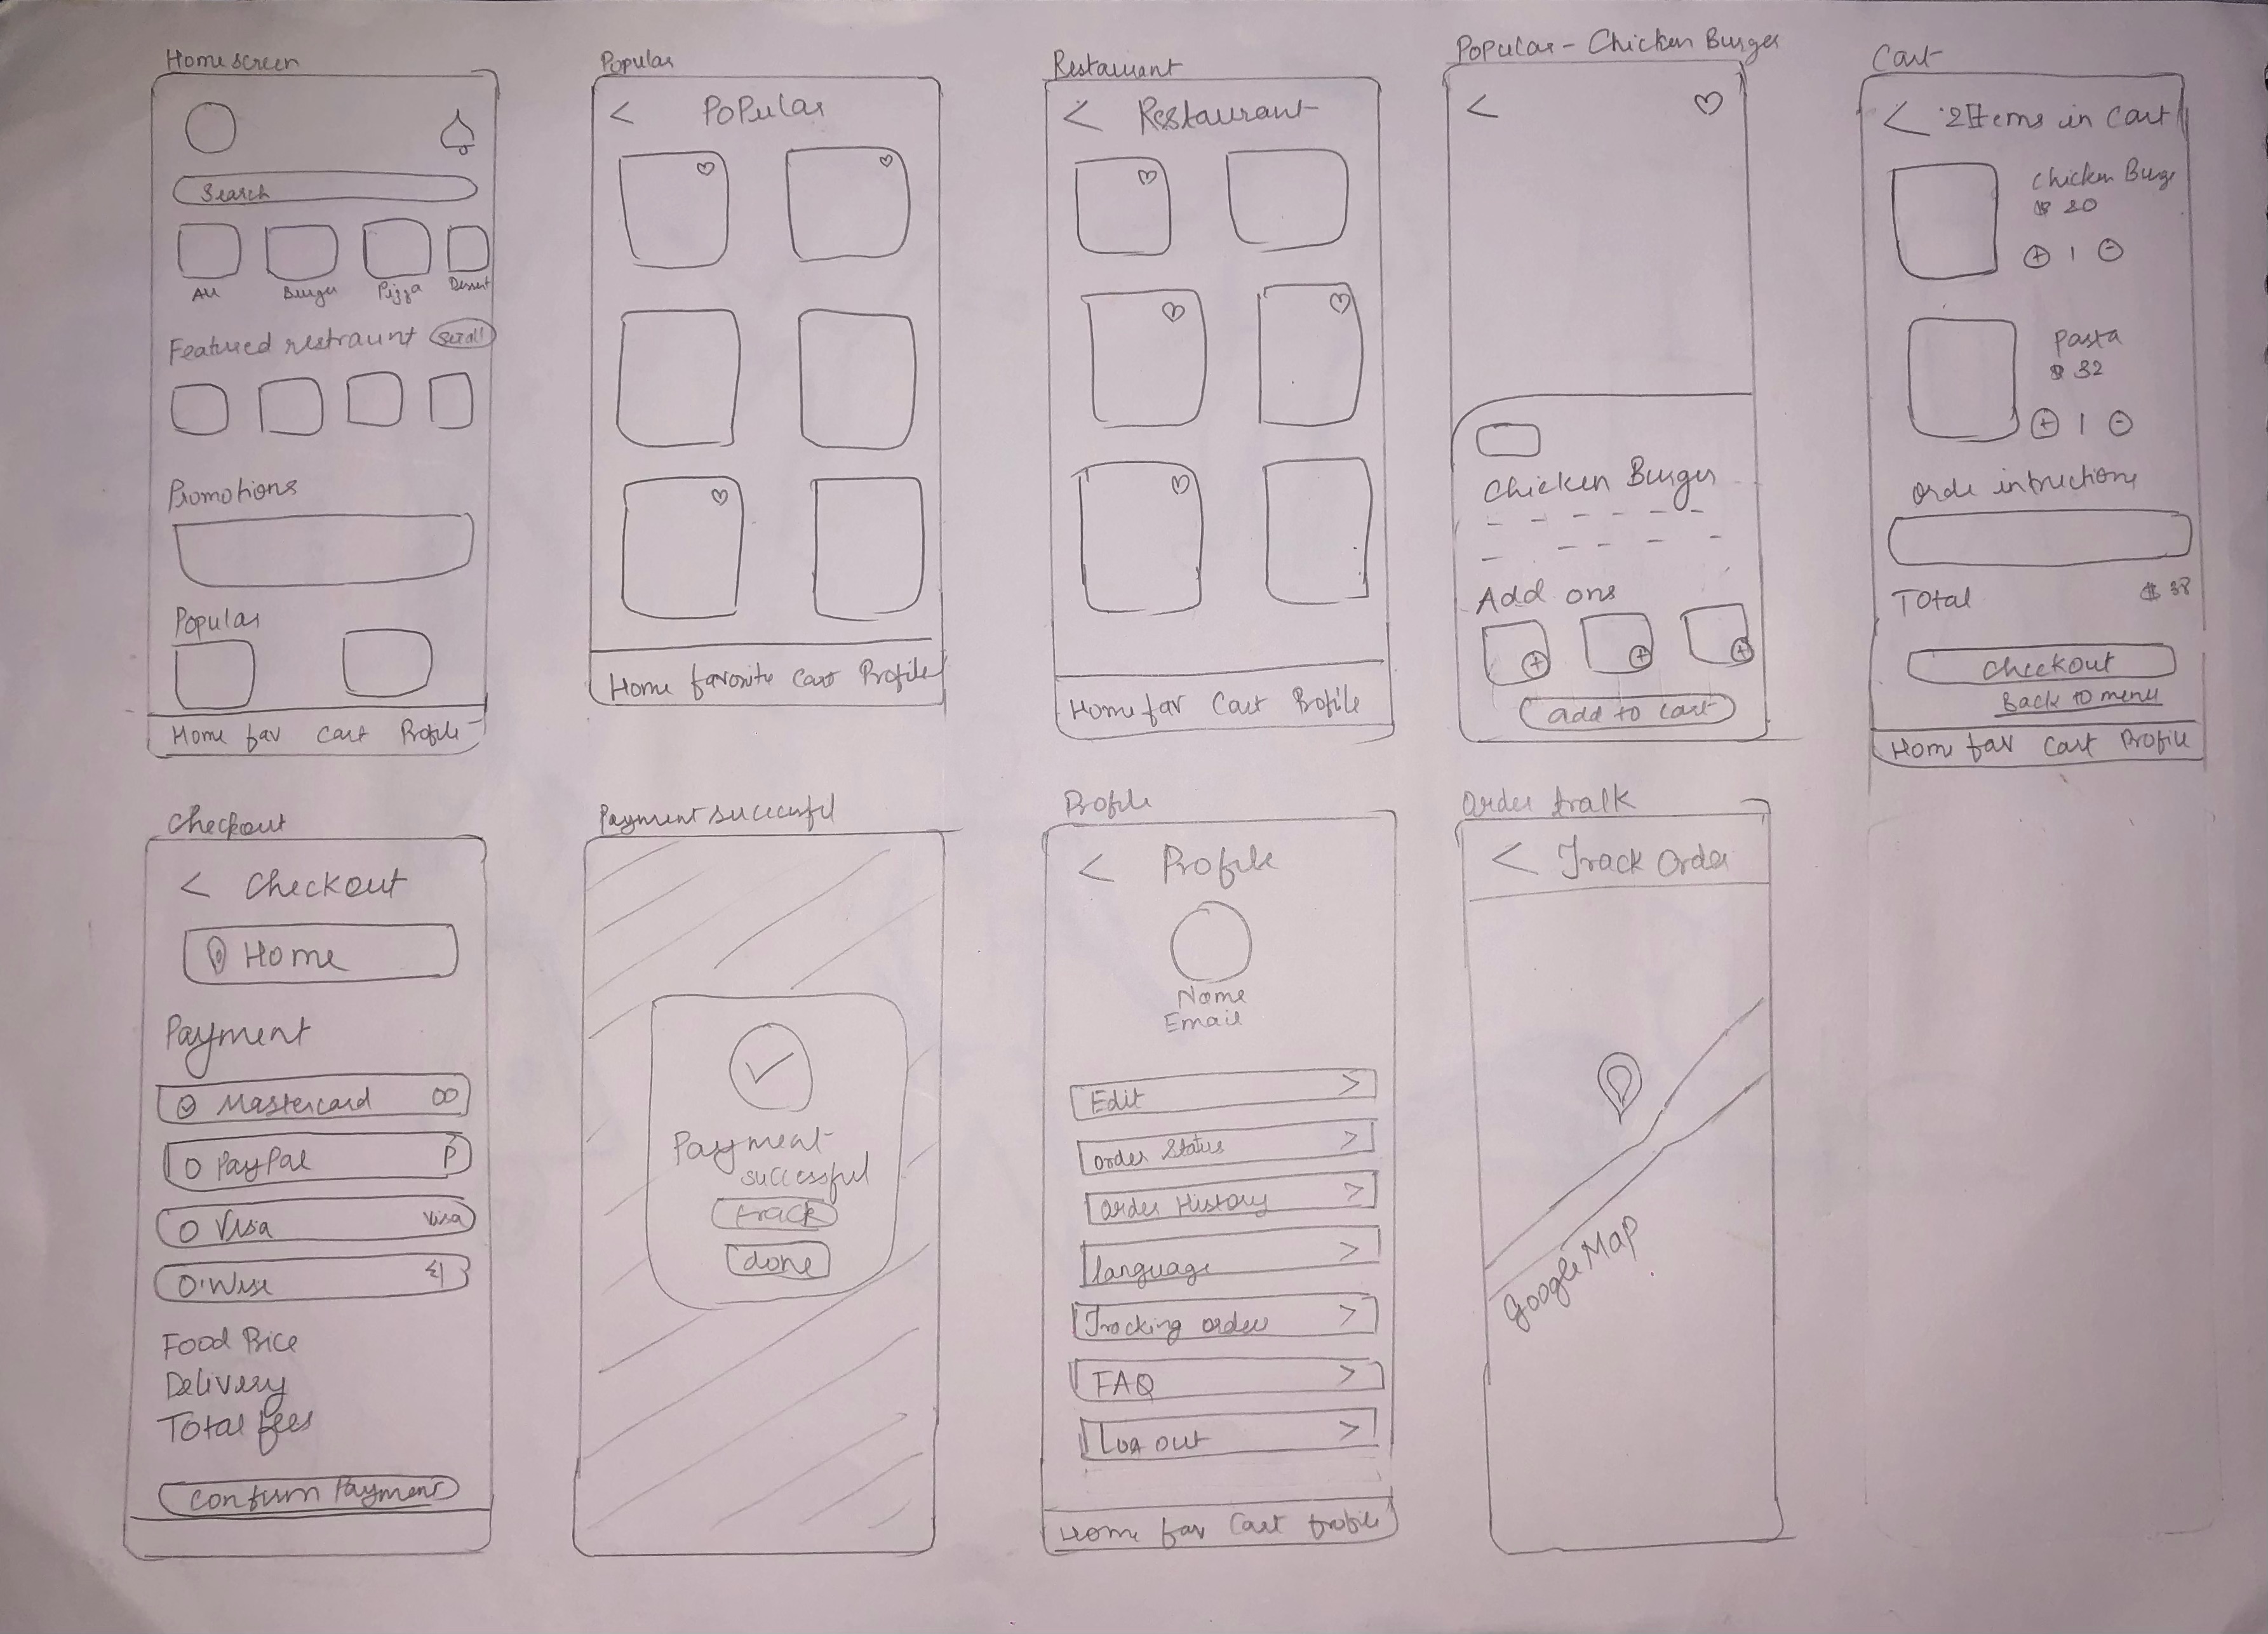 Home screen
Search
All Burger Pizza Dessert
Featured restraunt scroll
Promotions
Popular
Home fav Cart Profile
Popular
< Popular
Home favorite Cart Profile
Restaurant
< Restaurant
Home fav Cart Profile
Popular - Chicken Burger
<
Chicken Burger
Add ons
+ + +
add to cart
Cart
< 2 Items in Cart
Chicken Burge
$ 20
+ 1 -
Pasta
$ 32
+ 1 -
Orde intructions
Total $ 38
Checkout
Back to menu
Home fav Cart Profile
Checkout
< Checkout
Home
Payment
Mastercard
PayPal P
Visa Visa
Wise
Food Price
Delivery
Total fees
Confirm Payment
Payment
successful
track
done
Profile
< Profile
Name
Email
Edit >
Order Status >
Order History >
language >
Tracking order >
FAQ >
Log out >
Home fav Cart Profile
Order tralk
< Track Order
Google Map